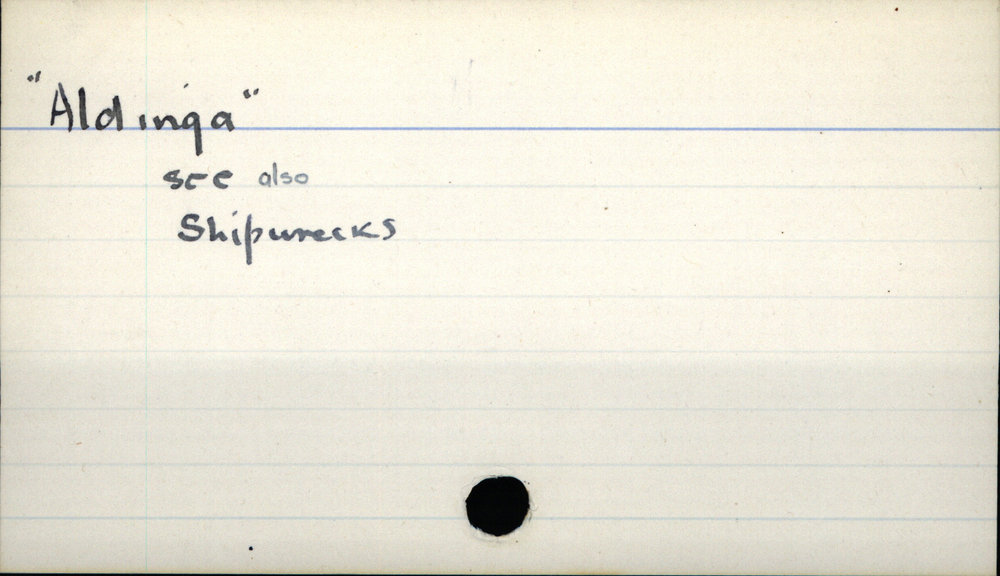 "Aldinga"
see also
Shipwrecks